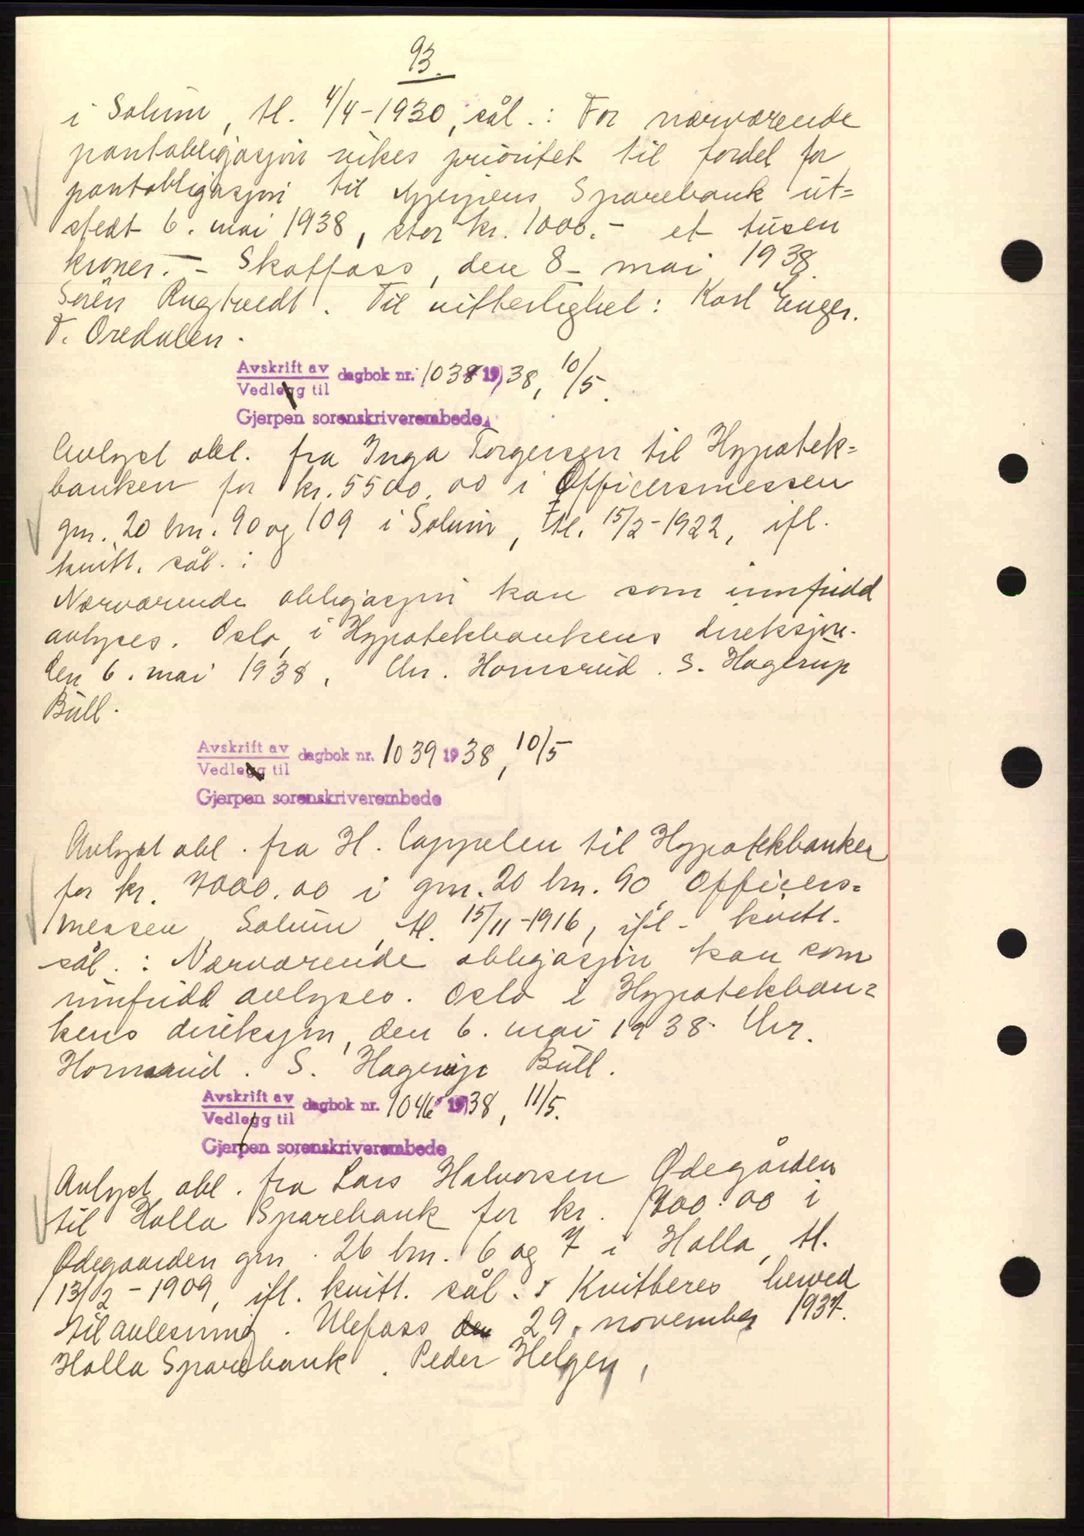 93.
i Solum, tl. 4/4-1930, sål.: For nærværende
pantobligasjon vikes prioritet til fordel for
pantobligasjon til Gjerpens Sparebank ut=
stedt 6. mai 1938, stor kr. 1000.- et tusen
kroner.- Skotfoss, den 8- mai 1938.
Søren Rugtvedt. Til vitterlighet: Karl Enger.
T. Oredalen.
Avskrift av
Vedlegg til dagbok nr. 1038 1938, 10/5.
Gjerpen sorenskriverembede
Avlyst obl. fra Inga Torgersen til Hypotek=
banken for kr. 5500.00 i Officersmessen
gnr. 20 bnr. 90 og 109 i Solum, tl. 15/2-1922, ifl.
kvitt. sål.:
Nærværende obligasjon kan som innfridd
avlyses. Oslo, i Hypotekbankens direksjon.
den 6. mai 1938, Chr. Homsrud. S. Hagerup
Bull.
Avskrift av
Vedlegg til dagbok nr. 1039 1938, 10/5
Gjerpen sorenskriverembede
Avlyst obl. fra H. Cappelen til Hypotekbanken
for kr. 7000.00 i gnr. 20 bnr. 90 Officers=
messen Solum, tl. 15/11-1916, ifl. kvitt.
sål.: Nærværende obligasjon kan som
innfridd avlyses. Oslo i Hypotekban=
kens direksjon, den 6. mai 1938. Chr.
Homsrud. S. Hagerup Bull.
Avskrift av
Vedlegg til dagbok nr. 1046 1938, 11/5.
Gjerpen sorenskriverembede
Avlyst obl. fra Lars Halvorsen Ødegården
til Holla Sparebank for kr. 1400.00 i
Ødegaarden gnr. 26 bnr. 6 og 7 i Holla, tl.
13/2-1909, ifl. kvitt. sål.: Kvitteres herved
til avlesning. Ulefoss den 29. november 1937.
Holla Sparebank. Peder Helgen,